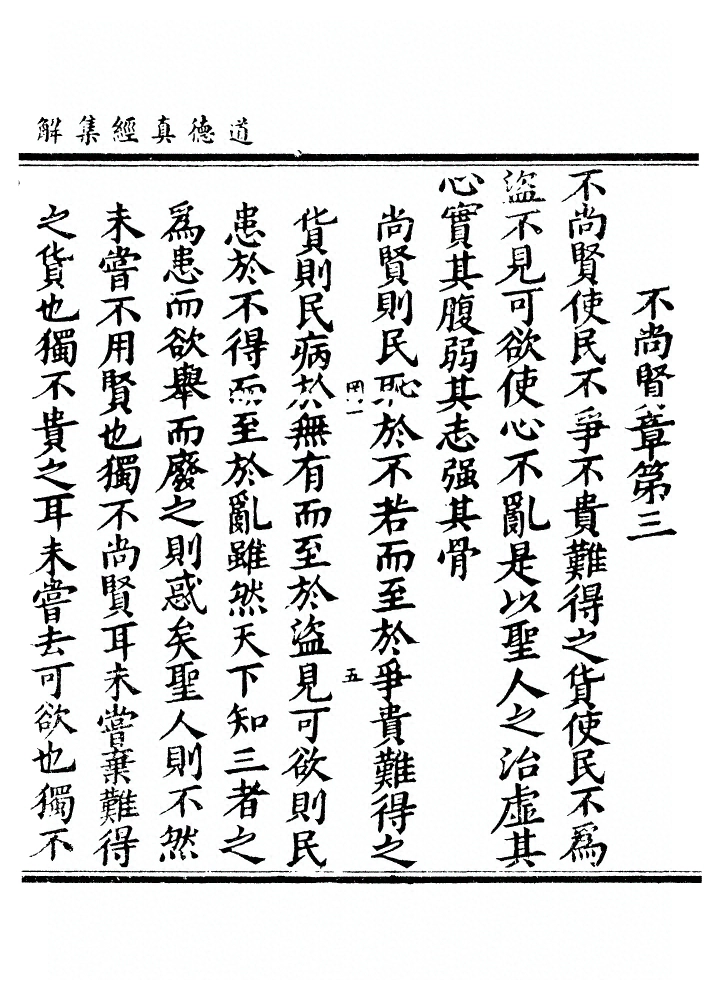 道德真經集解
不尚賢章第三
不尚賢使民不爭不貴難得之貨使民不為
盜不見可欲使心不亂是以聖人之治虛其
心實其腹弱其志强其骨
尚賢則民恥於不若而至於爭貴難得之
罔一
五
貨則民病於無有而至於盜見可欲則民
患於不得而至於亂雖然天下知三者之
爲患而欲舉而廢之則惑矣聖人則不然
未嘗不用賢也獨不尚賢耳未嘗棄難得
之貨也獨不貴之耳未嘗去可欲也獨不